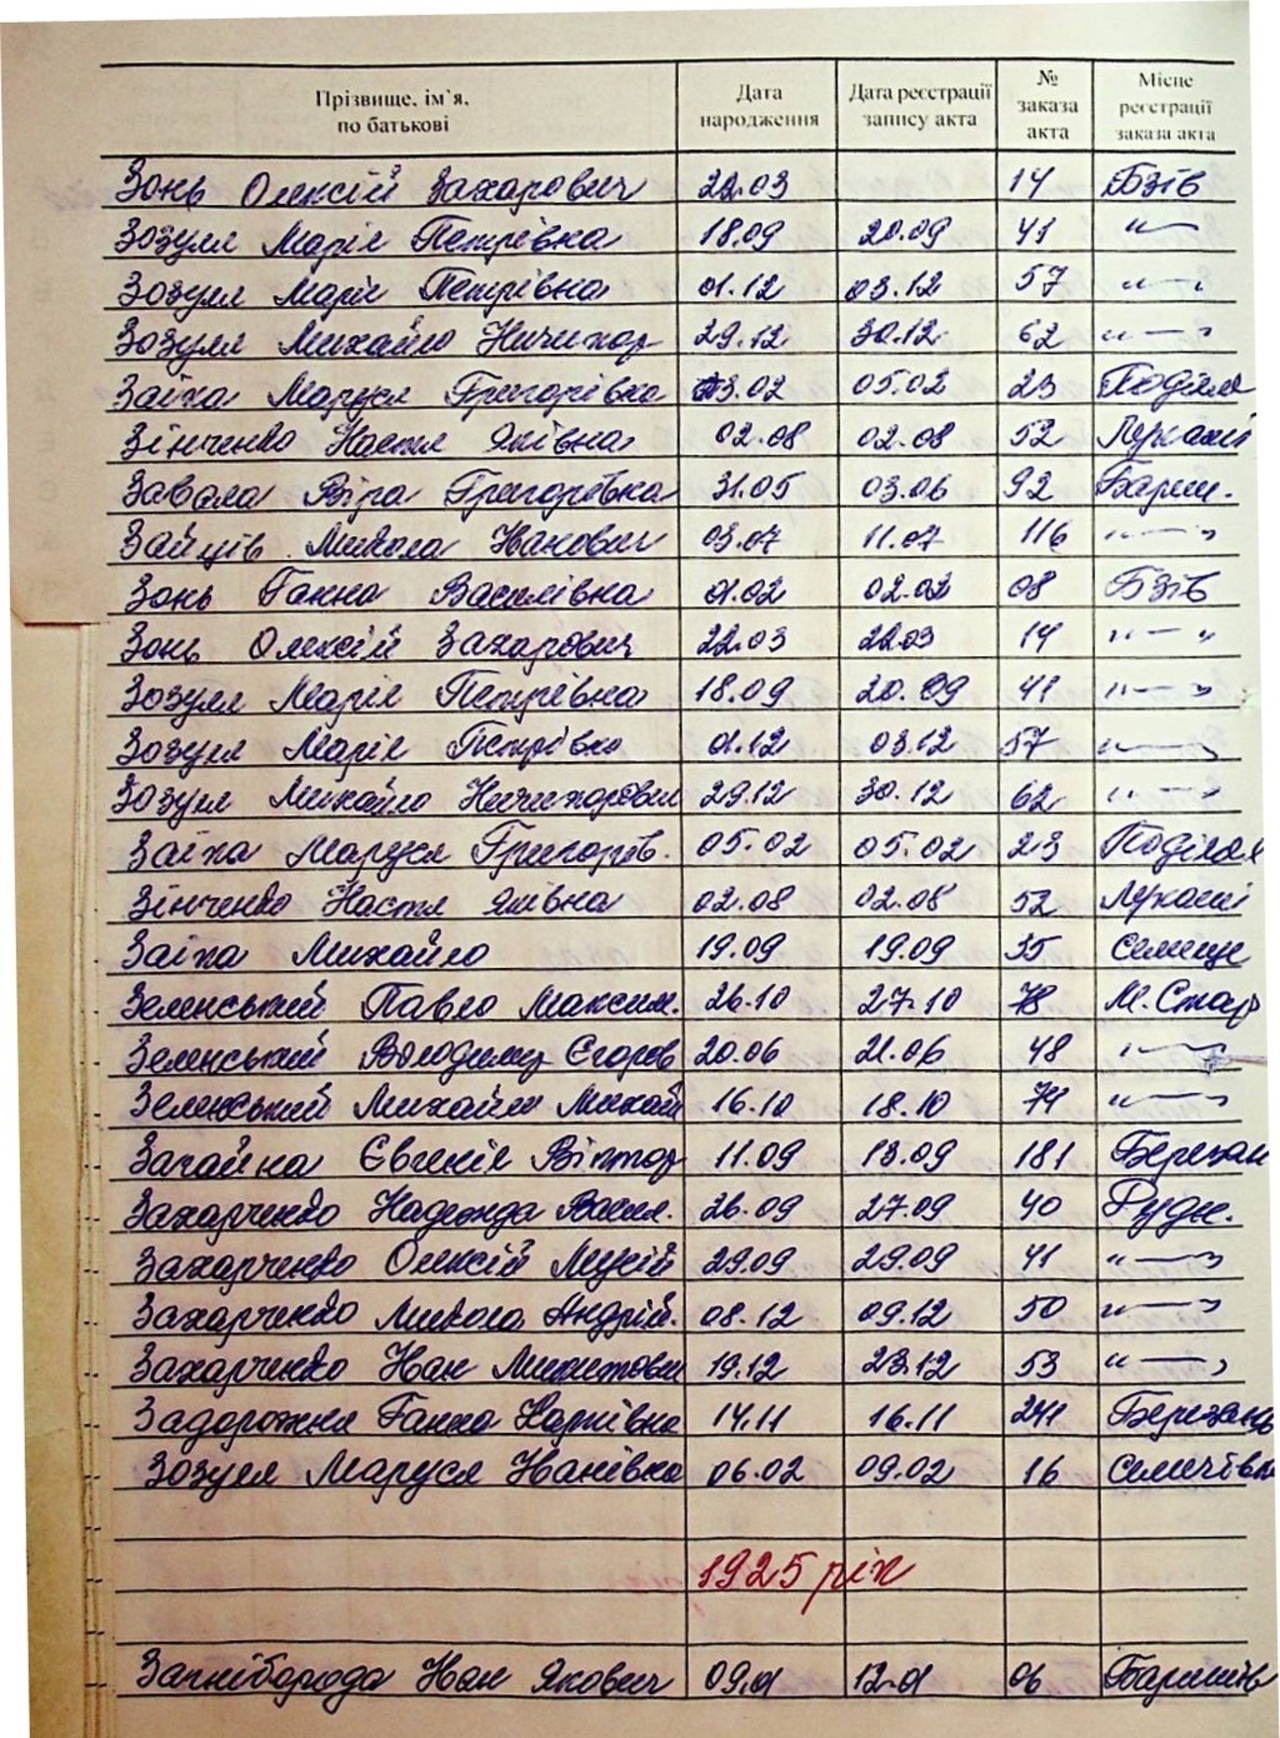 Прізвище, ім`я, по батькові Дата народження Дата реєстрації запису акта № заказа акта Місце реєстрації заказа акта
Зонь Олексій Захарович 22.03 14 Бзів
Зозуля Марія Петрівна 18.09 20.09 41 -"-
Зозуля Марія Петрівна 01.12 03.12 57 -"-
Зозуля Михайло Ничипор 29.12 30.12 62 -"-
Заїка Маруся Григорівна 03.02 05.02 23 Поділля
Зінченко Настя Яківна 02.08 02.08 52 Лукаші
Завала Віра Григорівна 31.05 03.06 92 Бариш.
Зайців Микола Іванович 03.07 11.07 116 -"-
Зонь Ганна Василівна 01.02 02.02 08 Бзів
Зонь Олексій Захарович 22.03 22.03 14 -"-
Зозуля Марія Петрівна 18.09 20.09 41 -"-
Зозуля Марія Петрівна 01.12 03.12 57 -"-
Зозуля Михайло Ничипорович 29.12 30.12 62 -"-
Заїка Маруся Григорів. 05.02 05.02 23 Поділля
Зінченко Настя Яківна 02.08 02.08 52 Лукаші
Заїка Михайло 19.09 19.09 35 Селище
Зеленський Павло Максим. 26.10 27.10 78 М.Стар
Зеленський Володимир Єгоров 20.06 21.06 48 -"-
Зеленський Михайло Михайл 16.10 18.10 74 -"-
Євгенія Віктор 11.09 13.09 181 Березан
Захарченко Надежда Васил. 26.09 27.09 40 Рудн.
Захарченко Олексій Мусій 29.09 29.09 41 -"-
Захарченко Микола Андрій. 08.12 09.12 50 -"-
Захарченко Іван Микитович 19.12 23.12 53 -"-
Задорожня Ганна Карпівна 14.11 16.11 241 Березань
Зозуля Маруся Іванівна 06.02 09.02 16 Семенівка
1925 рік
Загнiборода Іван Якович 09.01 12.01 06 Баришів